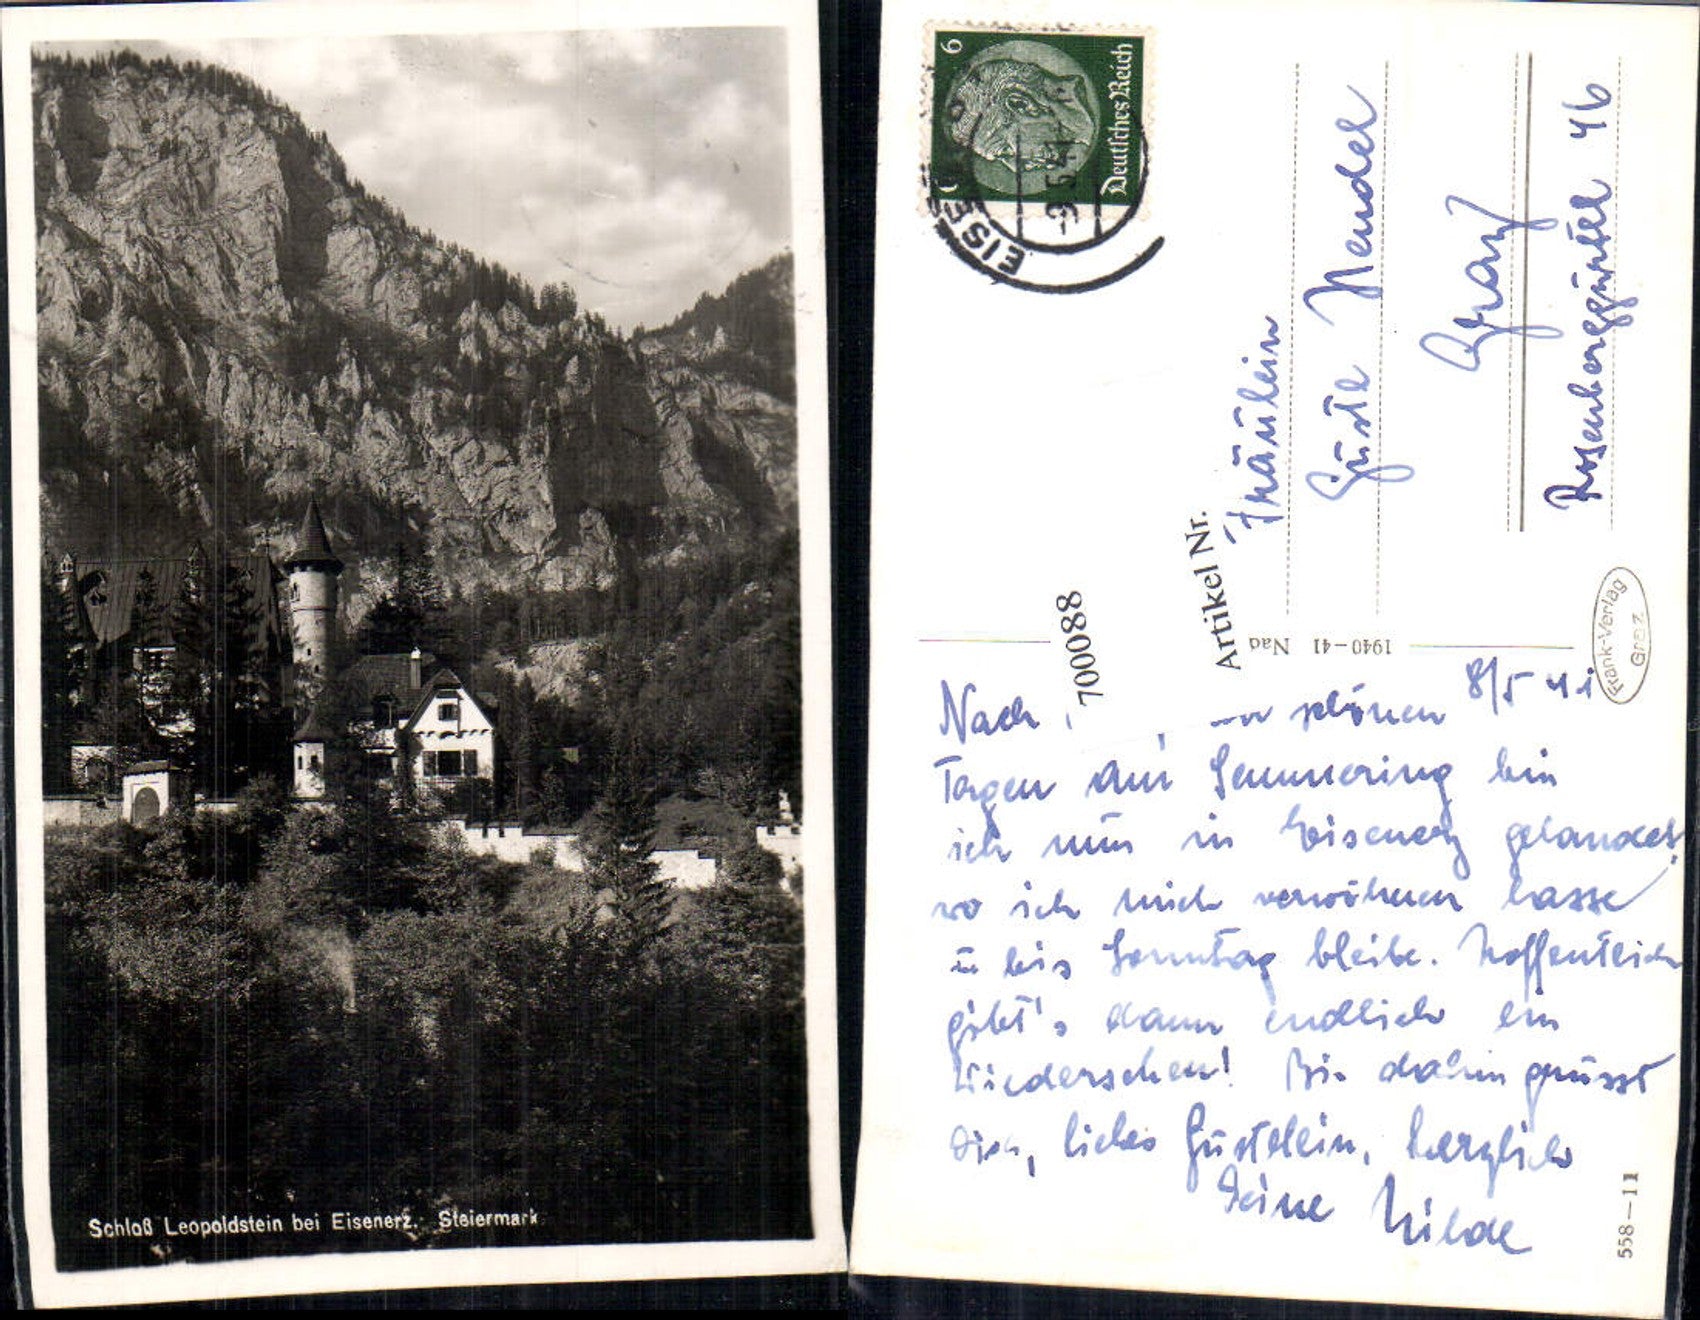 Schloß Leopoldstein bei Eisenerz. Steiermark
6
Deutsches Reich
EISENE
-9.5.41
Fräulein
Guste Mandel
Graz
Rosenberggürtel 46
Artikel Nr.
700088
1940-41 Nad
Frank-Verlag
Graz
8/5 41
Nach schönen
Tagen am Semmering bin
ich nun in Eisenerz gelandet,
wo ich mich verwöhnen lasse
u bis Sonntag bleibe. Hoffentlich
gibt's dann endlich ein
Wiedersehen! Bis dahin grüsst
Dich, liebes Gustelein, herzlich
Deine Hilde
558-11